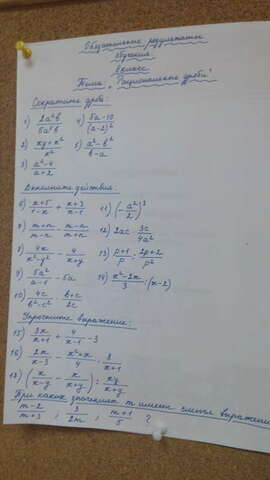 Обязательные результаты
обучения
8 класс
Тема: "Рациональные дроби".
Сократите дробь:
1) 2a²b/5a³b 4) 5a-10/(a-2)²
2) xy+x²/x² 5) a²-b²/b-a
3) a²-4/a+2
Выполните действия:
6) x+5/1-x + x+3/x-1 11) (-a²/2)³
7) m+n/m-n - m-n/m+n 12) 2ac · 3c/4a²
8) 4x/x²-y² - 4/x+y 13) p+1/p : 2p+2/p²
9) 5a²/a-1 - 5a 14) x²-2x/3 : (x-2)
10) 4c/b²-c² · b+c/2c
Упростите выражение:
15) 3x/x+1 + 4/x-1 - 3
16) 2x/x-3 - x²+x/4 · 8/x+1
17) (x/x-y - x/x+y) : xy/x+y
При каких значениях m имеют смысл выражения
m-2/m+3 ; 3/2m ; m+1/5 ?